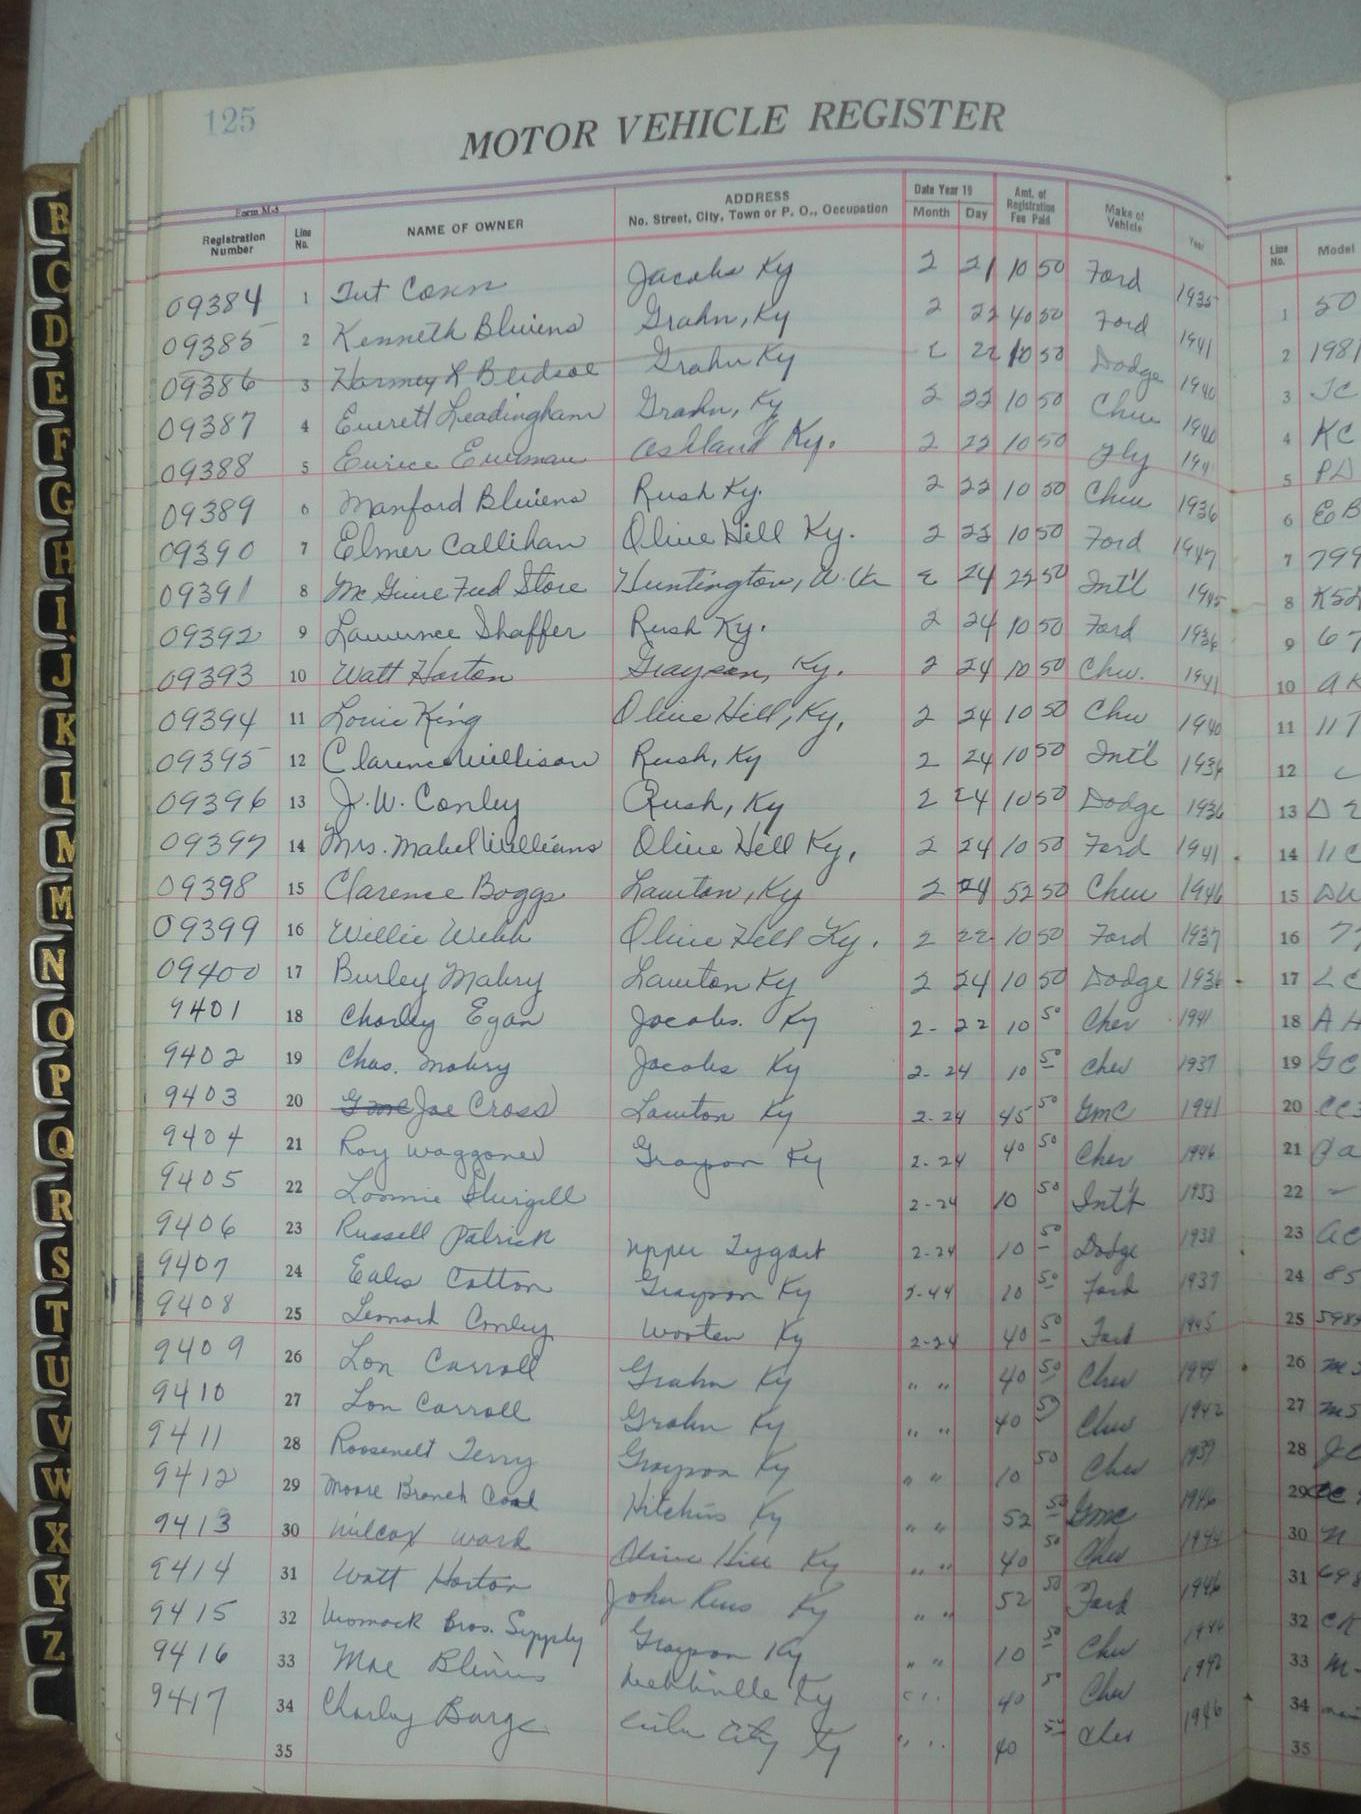 125
MOTOR VEHICLE REGISTER
Form M-5
Registration Number Line No. NAME OF OWNER ADDRESS No. Street, City, Town or P. O., Occupation Date Year 19 Month Day Amt. of Registration Fee Paid Make of Vehicle Year Line No. Model
09384 1 Tut Conn Jacobs Ky 2 21 10 50 Ford 1935 1 50
09385 2 Kenneth Blevins Grahn, Ky 2 22 40 50 Ford 1941 2 1981
09386 3 Grahn Ky 2 22 10 50 Dodge 1940 3 JC
09387 4 Everett Leadingham Grahn, Ky 2 22 10 50 Chev 1940 4 KC
09388 5 Ashland Ky. 2 22 10 50 Ply 5 PD
09389 6 Manford Blevins Rush Ky. 2 22 10 50 Chev 1936 6 EB
09390 7 Elmer Callihan Olive Hill Ky. 2 23 10 50 Ford 1947 7 799
09391 8 Mc Guire Feed Store Huntington, W. Va 2 24 22 50 Int'l 1945 8
09392 9 Lawrence Shaffer Rush Ky. 2 24 10 50 Ford 1936 9 67
09393 10 Watt Horton Grayson, Ky. 2 24 10 50 Chev. 1941 10 AK
09394 11 Louie King Olive Hill, Ky. 2 24 10 50 Chev 1940 11 117
09395 12 Clarence Willison Rush, Ky 2 24 10 50 Int'l 1936 12
09396 13 J. W. Conley Rush, Ky 2 24 10 50 Dodge 1936 13
09397 14 Mrs. Mabel Williams Olive Hill Ky. 2 24 10 50 Ford 1941 14 11C
09398 15 Clarence Boggs Lawton, Ky 2 24 52 50 Chev 1946 15 DW
09399 16 Willie Webb Olive Hill Ky. 2 22 10 50 Ford 1937 16 77
09400 17 Burley Mabry Lawton Ky 2 24 10 50 Dodge 1936 17 LC
9401 18 Charley Egan Jacobs. Ky 2-22 10 50 Chev 1941 18 AH
9402 19 Chas. Mabry Jacobs Ky 2-24 10 50 Chev 1937 19 GC
9403 20 Joe Cross Lawton Ky 2-24 45 50 GMC 1941 20
9404 21 Roy Waggoner Grayson Ky 2-24 40 50 Chev 1946 21
9405 22 Lonnie Sturgill 2-24 10 50 Int'l 1933 22
9406 23 Russell Patrick Upper Tygart 2-24 10 50 Dodge 1938 23 AC
9407 24 Cotton Grayson Ky 10 50 Ford 1937 24 85
9408 25 Lenord Conley Wooten Ky 2-24 40 50 Ford 1945 25
9409 26 Lon Carroll Grahn Ky " " 40 50 Chev 1944 26
9410 27 Lon Carroll Grahn Ky " " 40 50 Chev 1942 27
9411 28 Roosevelt Terry Grayson Ky " " 10 50 Chev 1937 28
9412 29 Moore Branch Coal Hitchins Ky " " 52 50 GMC 1946 29
9413 30 Wilcox Ward Olive Hill Ky " " 40 50 Chev 1944 30
9414 31 Watt Horton Johns Run Ky " " 52 50 Ford 1946 31 698
9415 32 Womack Bros. Supply Grayson Ky " " 10 50 Chev 32 CK
9416 33 Mae Blevins Webbville Ky " " 40 50 Chev 1942 33
9417 34 Charley Barge City Ky " " 40 50 Chev 1946 34
35 35
B
C
D
E
F
G
H
I
J
K
L
M
M
N
O
P
Q
R
S
T
U
V
W
X
Y
Z